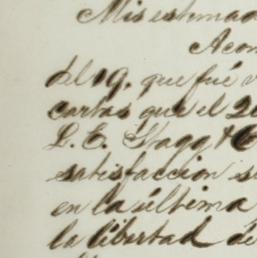 Mis estimad
Acom
del 19, que fué
cartas que el 2
L. E. Stagg &
satisfaccion s
en la última
la libertad de